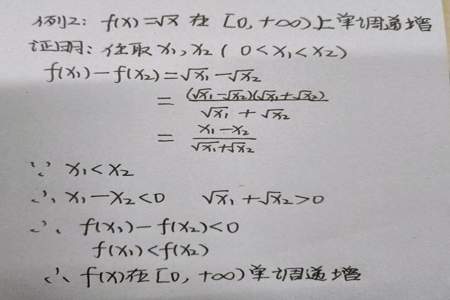 例2: f(x)=√x 在 [0,+∞)上单调递增
证明: 任取 x₁,x₂ (0<x₁<x₂)
f(x₁)-f(x₂)=√x₁-√x₂
= (√x₁-√x₂)(√x₁+√x₂) / √x₁+√x₂
= x₁-x₂ / √x₁+√x₂
∵ x₁<x₂
∴ x₁-x₂<0 √x₁+√x₂>0
∴ f(x₁)-f(x₂)<0
f(x₁)<f(x₂)
∴ f(x)在[0,+∞)单调递增